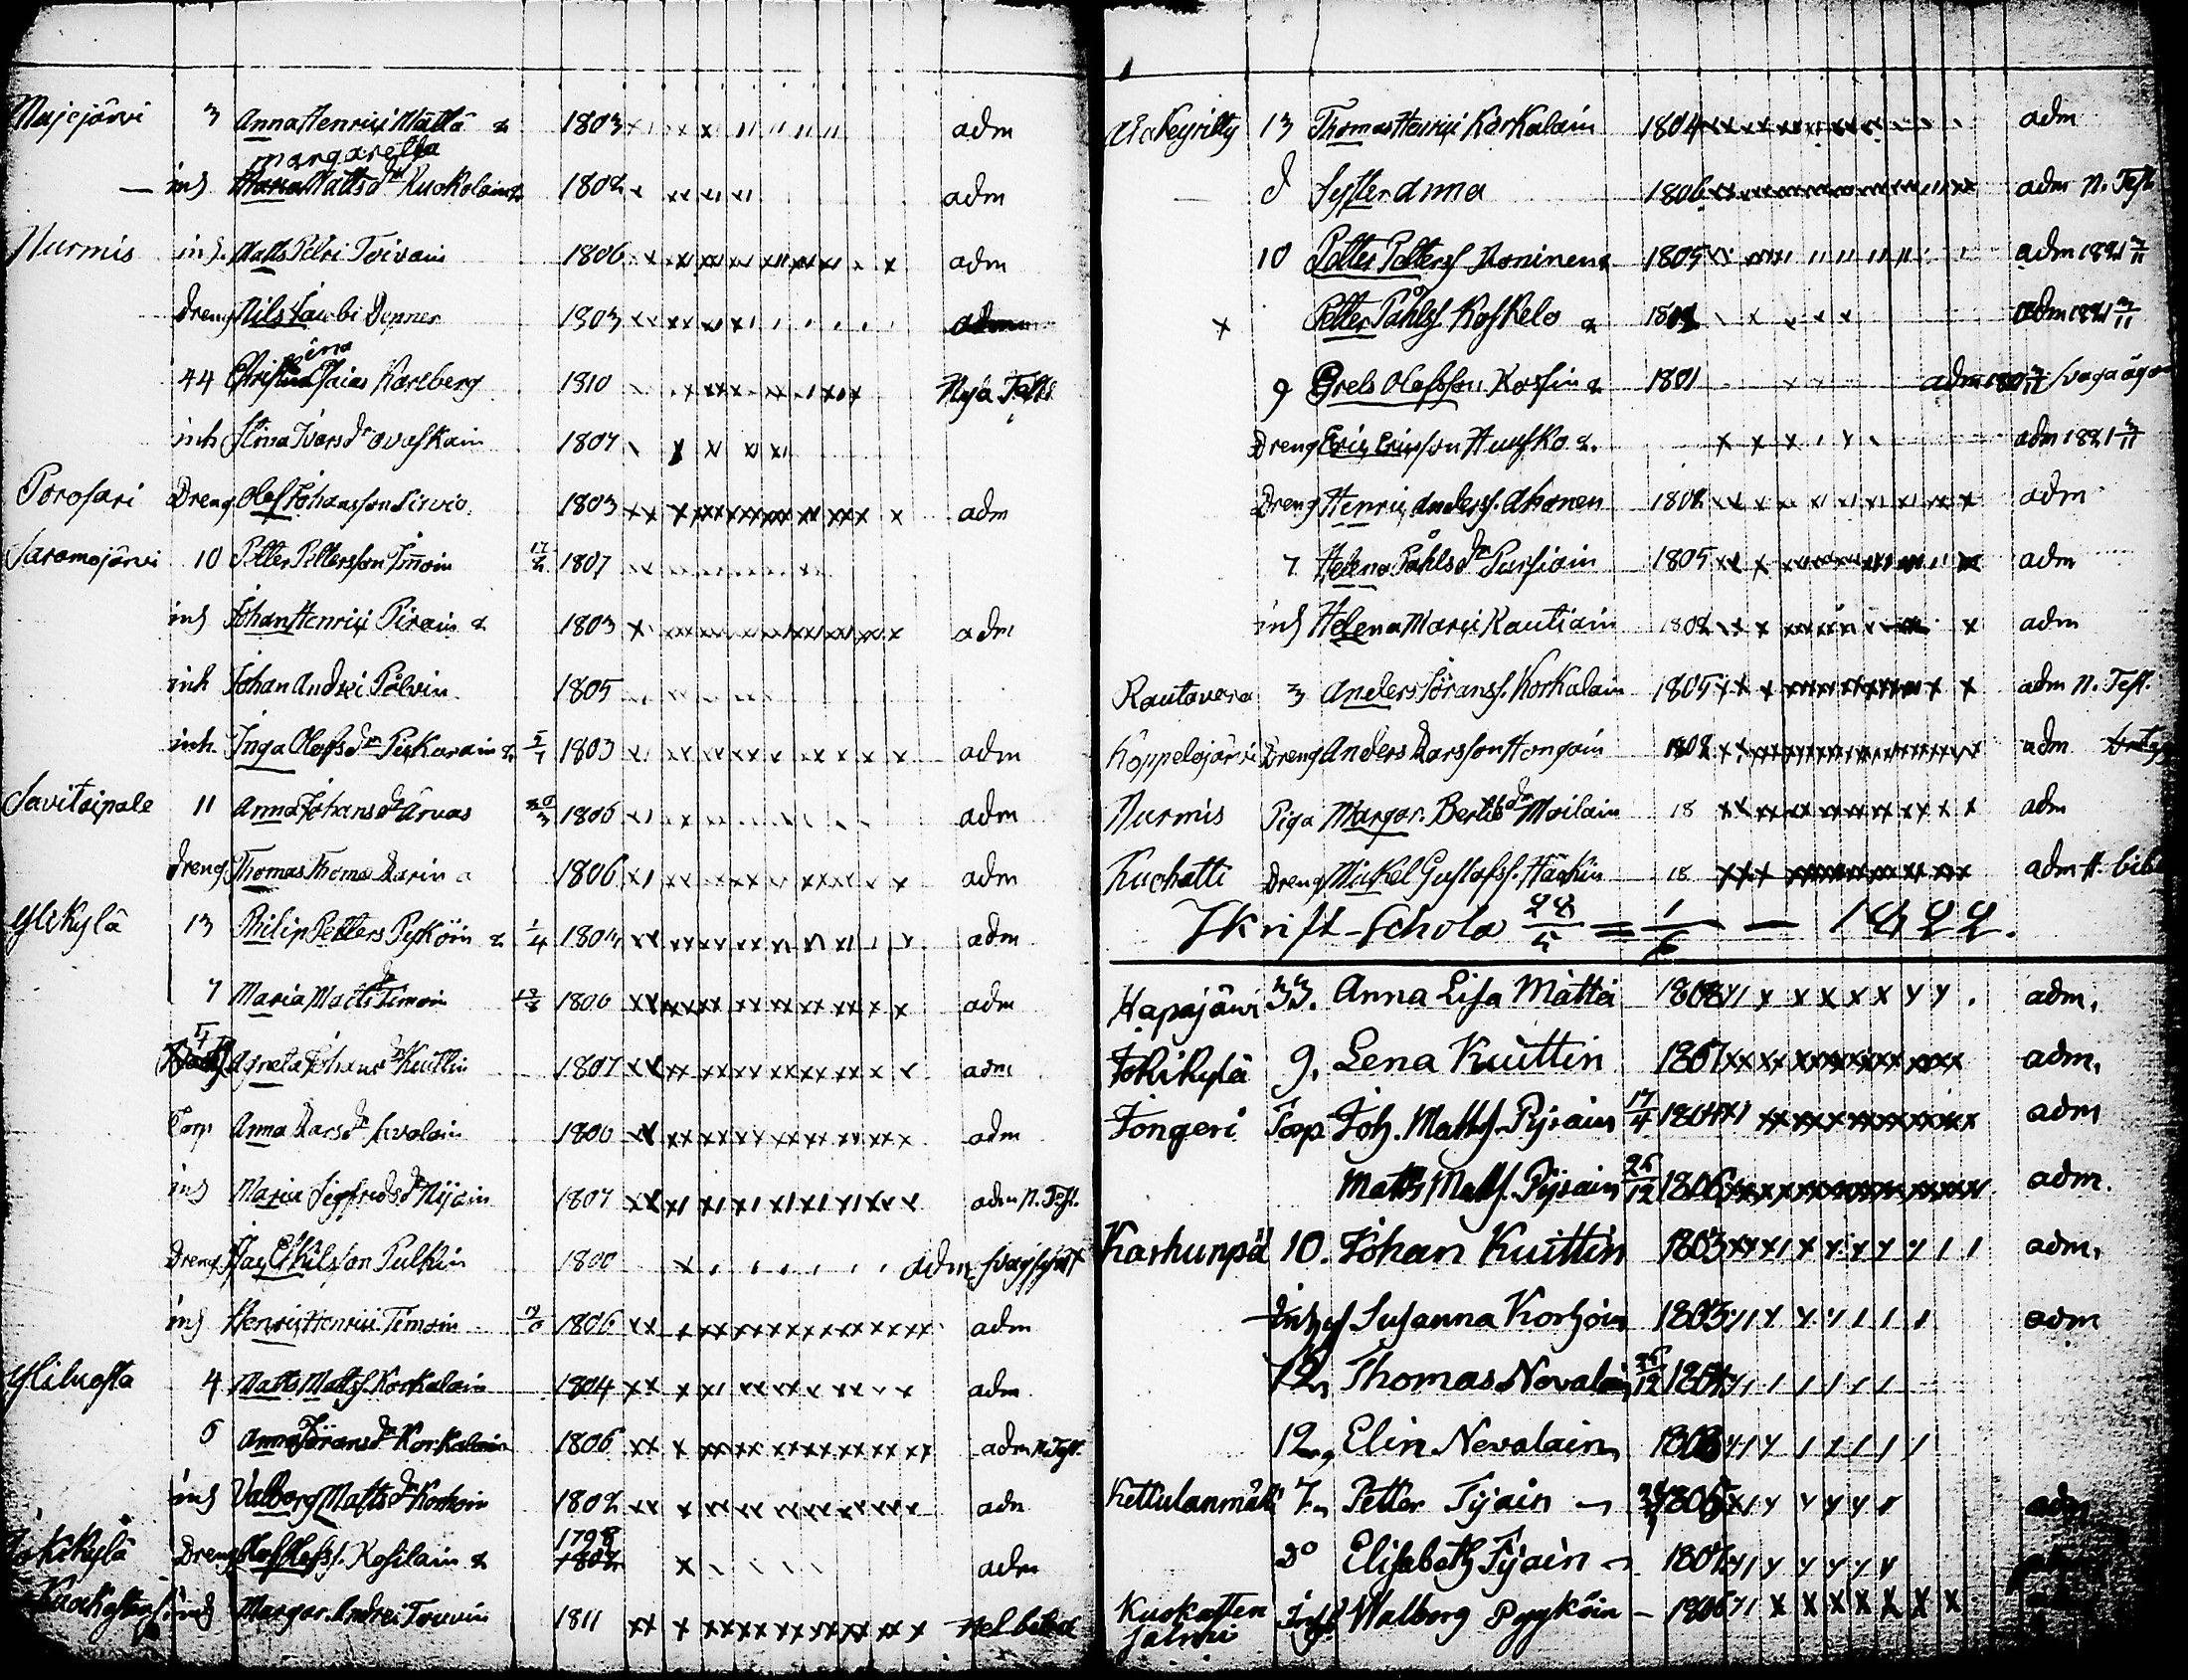 Majejärvi 3 Anna Henrici Mättä & 1803 adm
margaretha
— inh Matts dr Kuokolain & 1802 adm
Nurmis inh. Matts Petri Toivain 1806 adm
dreng Nils Jacobi Dönner 1803 adm
ina
44 Christina Isaias Karlberg 1810 Nya Test
inh Stina Ivars dr Ovaskain 1807
Porosari Dreng Olof Johansson Sirviö 1803 adm
Saramojärvi 10 Petter Pettersson Timoin 17/2 1807
inh Johan Henrici Pirain & 1803 adm
inh Johan Andrei Pålvin 1805
inh Inga Olofs dr Piskarain & 5/7 1803 adm
Savikipale 11 Anna Johans dr Årvas 20/3 1806 adm
dreng Thomas Thomæ Karin 1806 adm
Ylikylä 13 Philip Petters Pyköin & 1/4 1804 adm
7 Maria Matts dr Timoin 1806 adm
Agneta Johans dr Kuittin 1807 adm
Torp Anna Lars dr Savolain 1806 adm
inh Maria Sigfrids dr Nijain 1807 adm N. Test.
Dreng Påhl Eskilsson Pulkin 1800 adm
inh Henric Henrici Timoin 1806 adm
Yliluosta 4 Matts Matts. Korkalain 1804 adm
6 Anna Jörans dr Korkalain 1806 adm N. Test.
inh Valborg Matts dr Korhoin 1802 adm
1798
Jokikylä Dreng Olof Olofss. Kosilain & 1802 adm
inh Margar. Andrei Touvin 1811 Hel bibel
13 Thomas Henrici Karkalain 1804 adm
d Syster Anna 1806 adm N. Test.
10 Petter Petterss Roninen & 1805 adm 1821 3/11
x Petter Påhls Koskelo & 1802 adm 1821 3/11
9 Grels Olofsson Kosin & 1801 adm svaga ögon
Dreng Eric Ericsson Huusko & adm 1821 3/11
Dreng Henric Anderss. Ahonen 1802 adm
7 Helena Påhls dr Pursiain 1805 adm
inh Helena Marci Kautiain 1802 adm
Rautavara 3 Anders Jöranss. Korkalain 1805 adm N. Test.
Koppelojärvi Dreng Anders Larsson Hongain 1802 adm
Nurmis Piga Margar. Bertils dr Moilain 18 adm
Kuohatti Dreng Mickel Gustafss. Häckin 18 adm H. bib
Skrift-Schola 28/5 = 1/6 — 1822.
Hapajärvi 33. Anna Lisa Mättä 1808 adm.
Jokikylä 9. Lena Kuittin 1807 adm.
Jongeri Torp Joh. Mattss. Pyrain 17/4 1804 adm
Matts Mattss. Pyrain 26/12 1806 adm.
Karhunpä 10. Johan Kuittin 1803 adm.
Inhys Susanna Korhoin 1803 adm
12. Thomas Nevalain 26/12 1804
12. Elin Nevalain 1808
Kettulanmäki 7. Petter Tijain 1805 adm
Do Elisabeth Tijain 1807
Kuokatten Inhys Walborg Pyyköin — 1806
jalmi